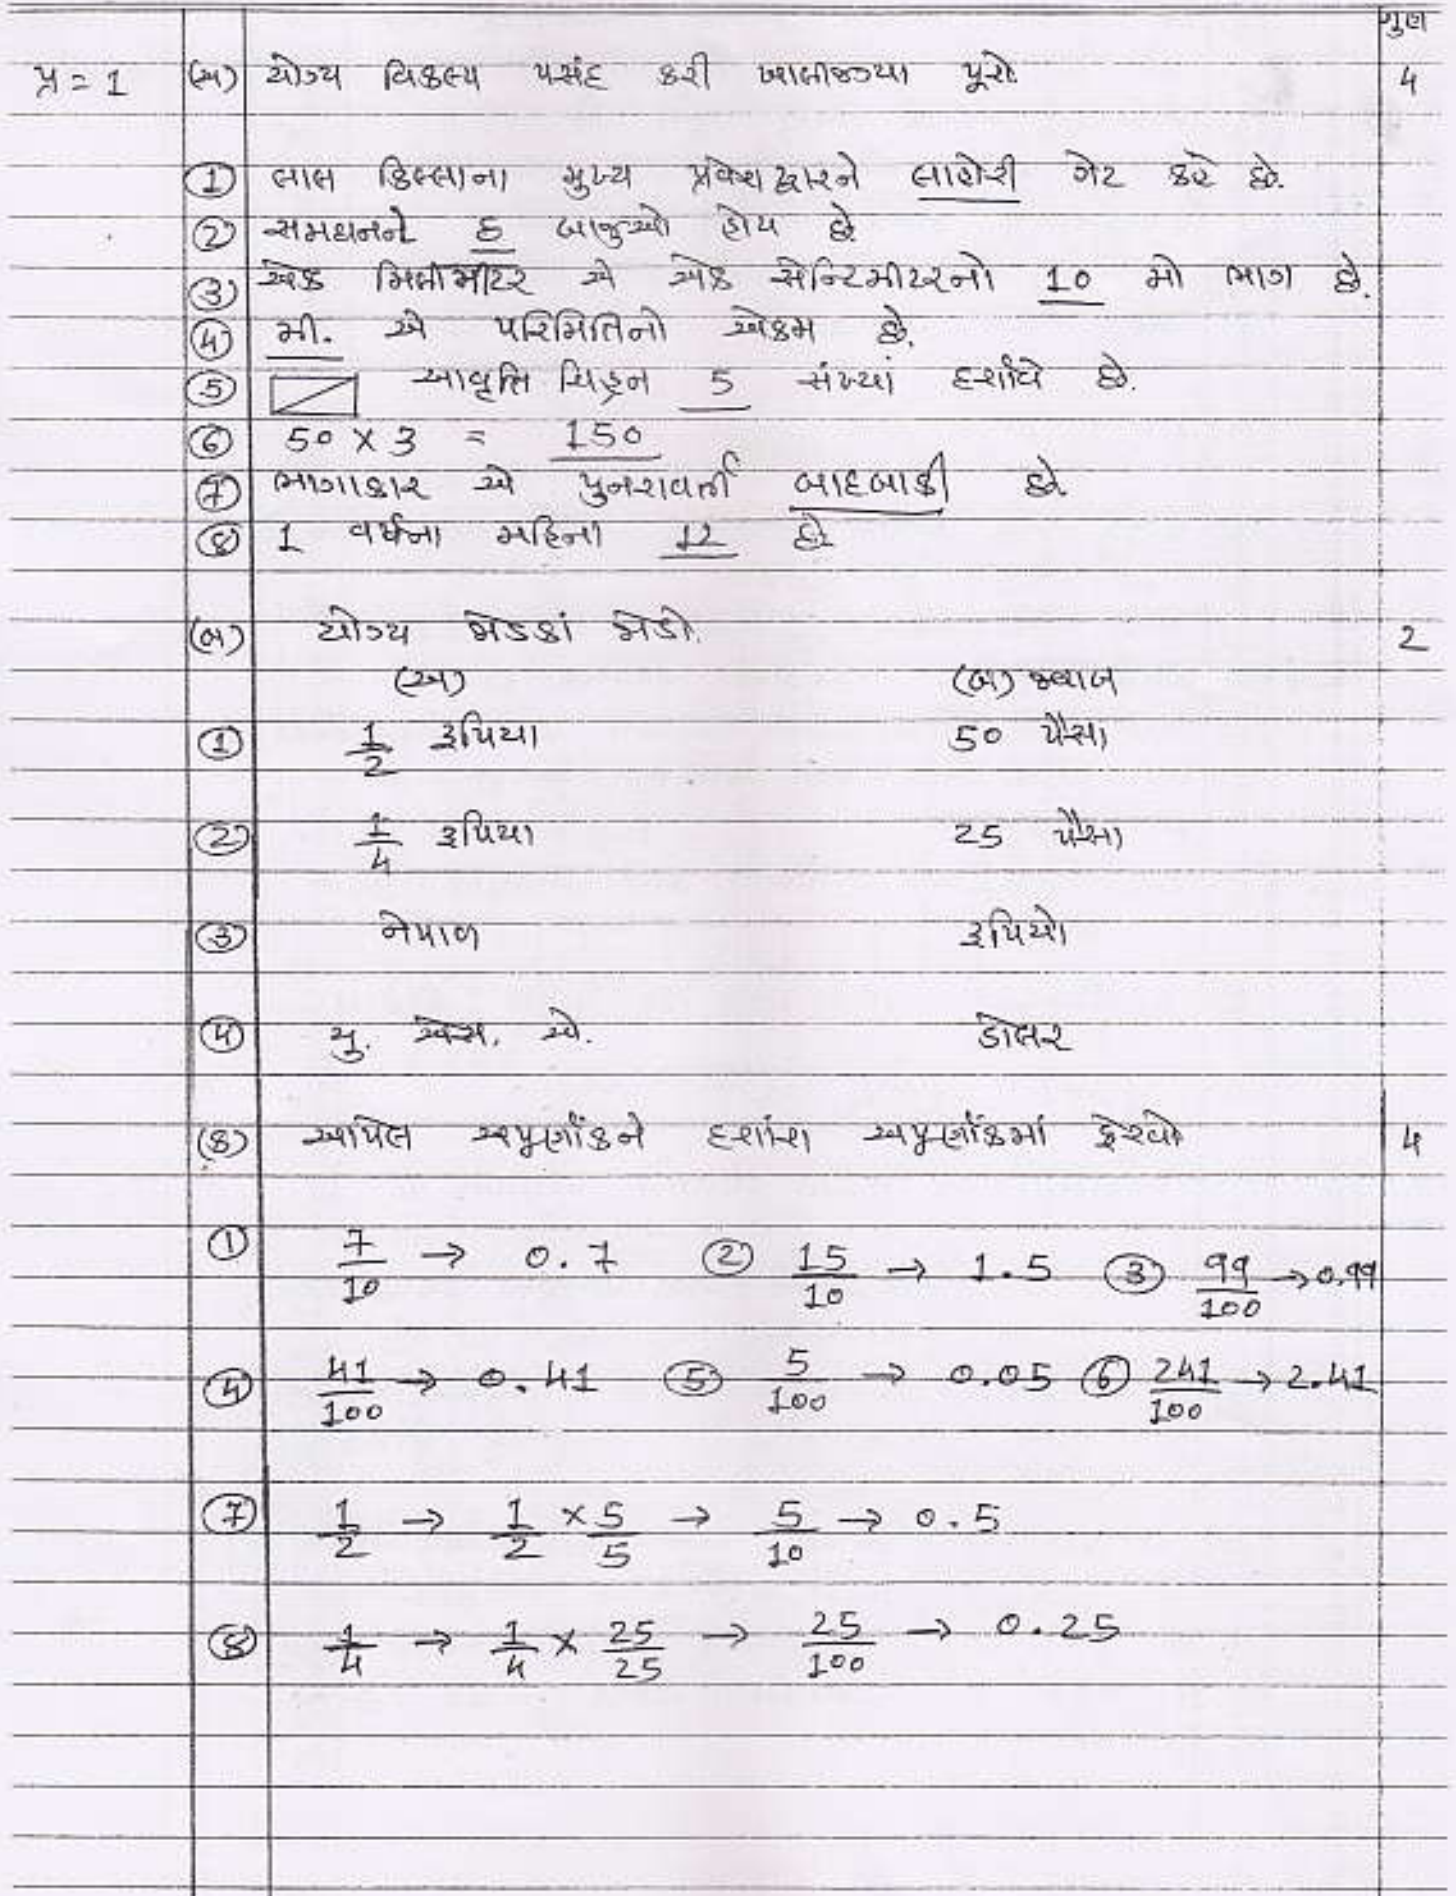 ગુણ
પ્ર = 1 (અ) યોગ્ય વિકલ્પ પસંદ કરી ખાલીજગ્યા પૂરો. 4
① લાલ કિલ્લાના મુખ્ય પ્રવેશદ્વારને લાહોરી ગેટ કહે છે.
② સમઘનને 6 બાજુઓ હોય છે.
③ એક મિલીમીટર એ એક સેન્ટિમીટરનો 10 મો ભાગ છે.
④ મી. એ પરિમિતિનો એકમ છે.
⑤ આવૃત્તિ ચિહ્ન 5 સંખ્યા દર્શાવે છે.
⑥ 50 × 3 = 150
⑦ ભાગાકાર એ પુનરાવર્તી બાદબાકી છે.
⑧ 1 વર્ષના મહિના 12 છે.
(બ) યોગ્ય જોડકાં જોડો. 2
(અ) (બ) જવાબ
① 1/2 રૂપિયા 50 પૈસા
② 1/4 રૂપિયા 25 પૈસા
③ નેપાળ રૂપિયો
④ યુ. એસ. એ. ડોલર
(ક) આપેલ અપૂર્ણાંકને દશાંશ અપૂર્ણાંકમાં ફેરવો 4
① 7/10 → 0.7 ② 15/10 → 1.5 ③ 99/100 → 0.99
④ 41/100 → 0.41 ⑤ 5/100 → 0.05 ⑥ 241/100 → 2.41
⑦ 1/2 → 1/2 × 5/5 → 5/10 → 0.5
⑧ 1/4 → 1/4 × 25/25 → 25/100 → 0.25